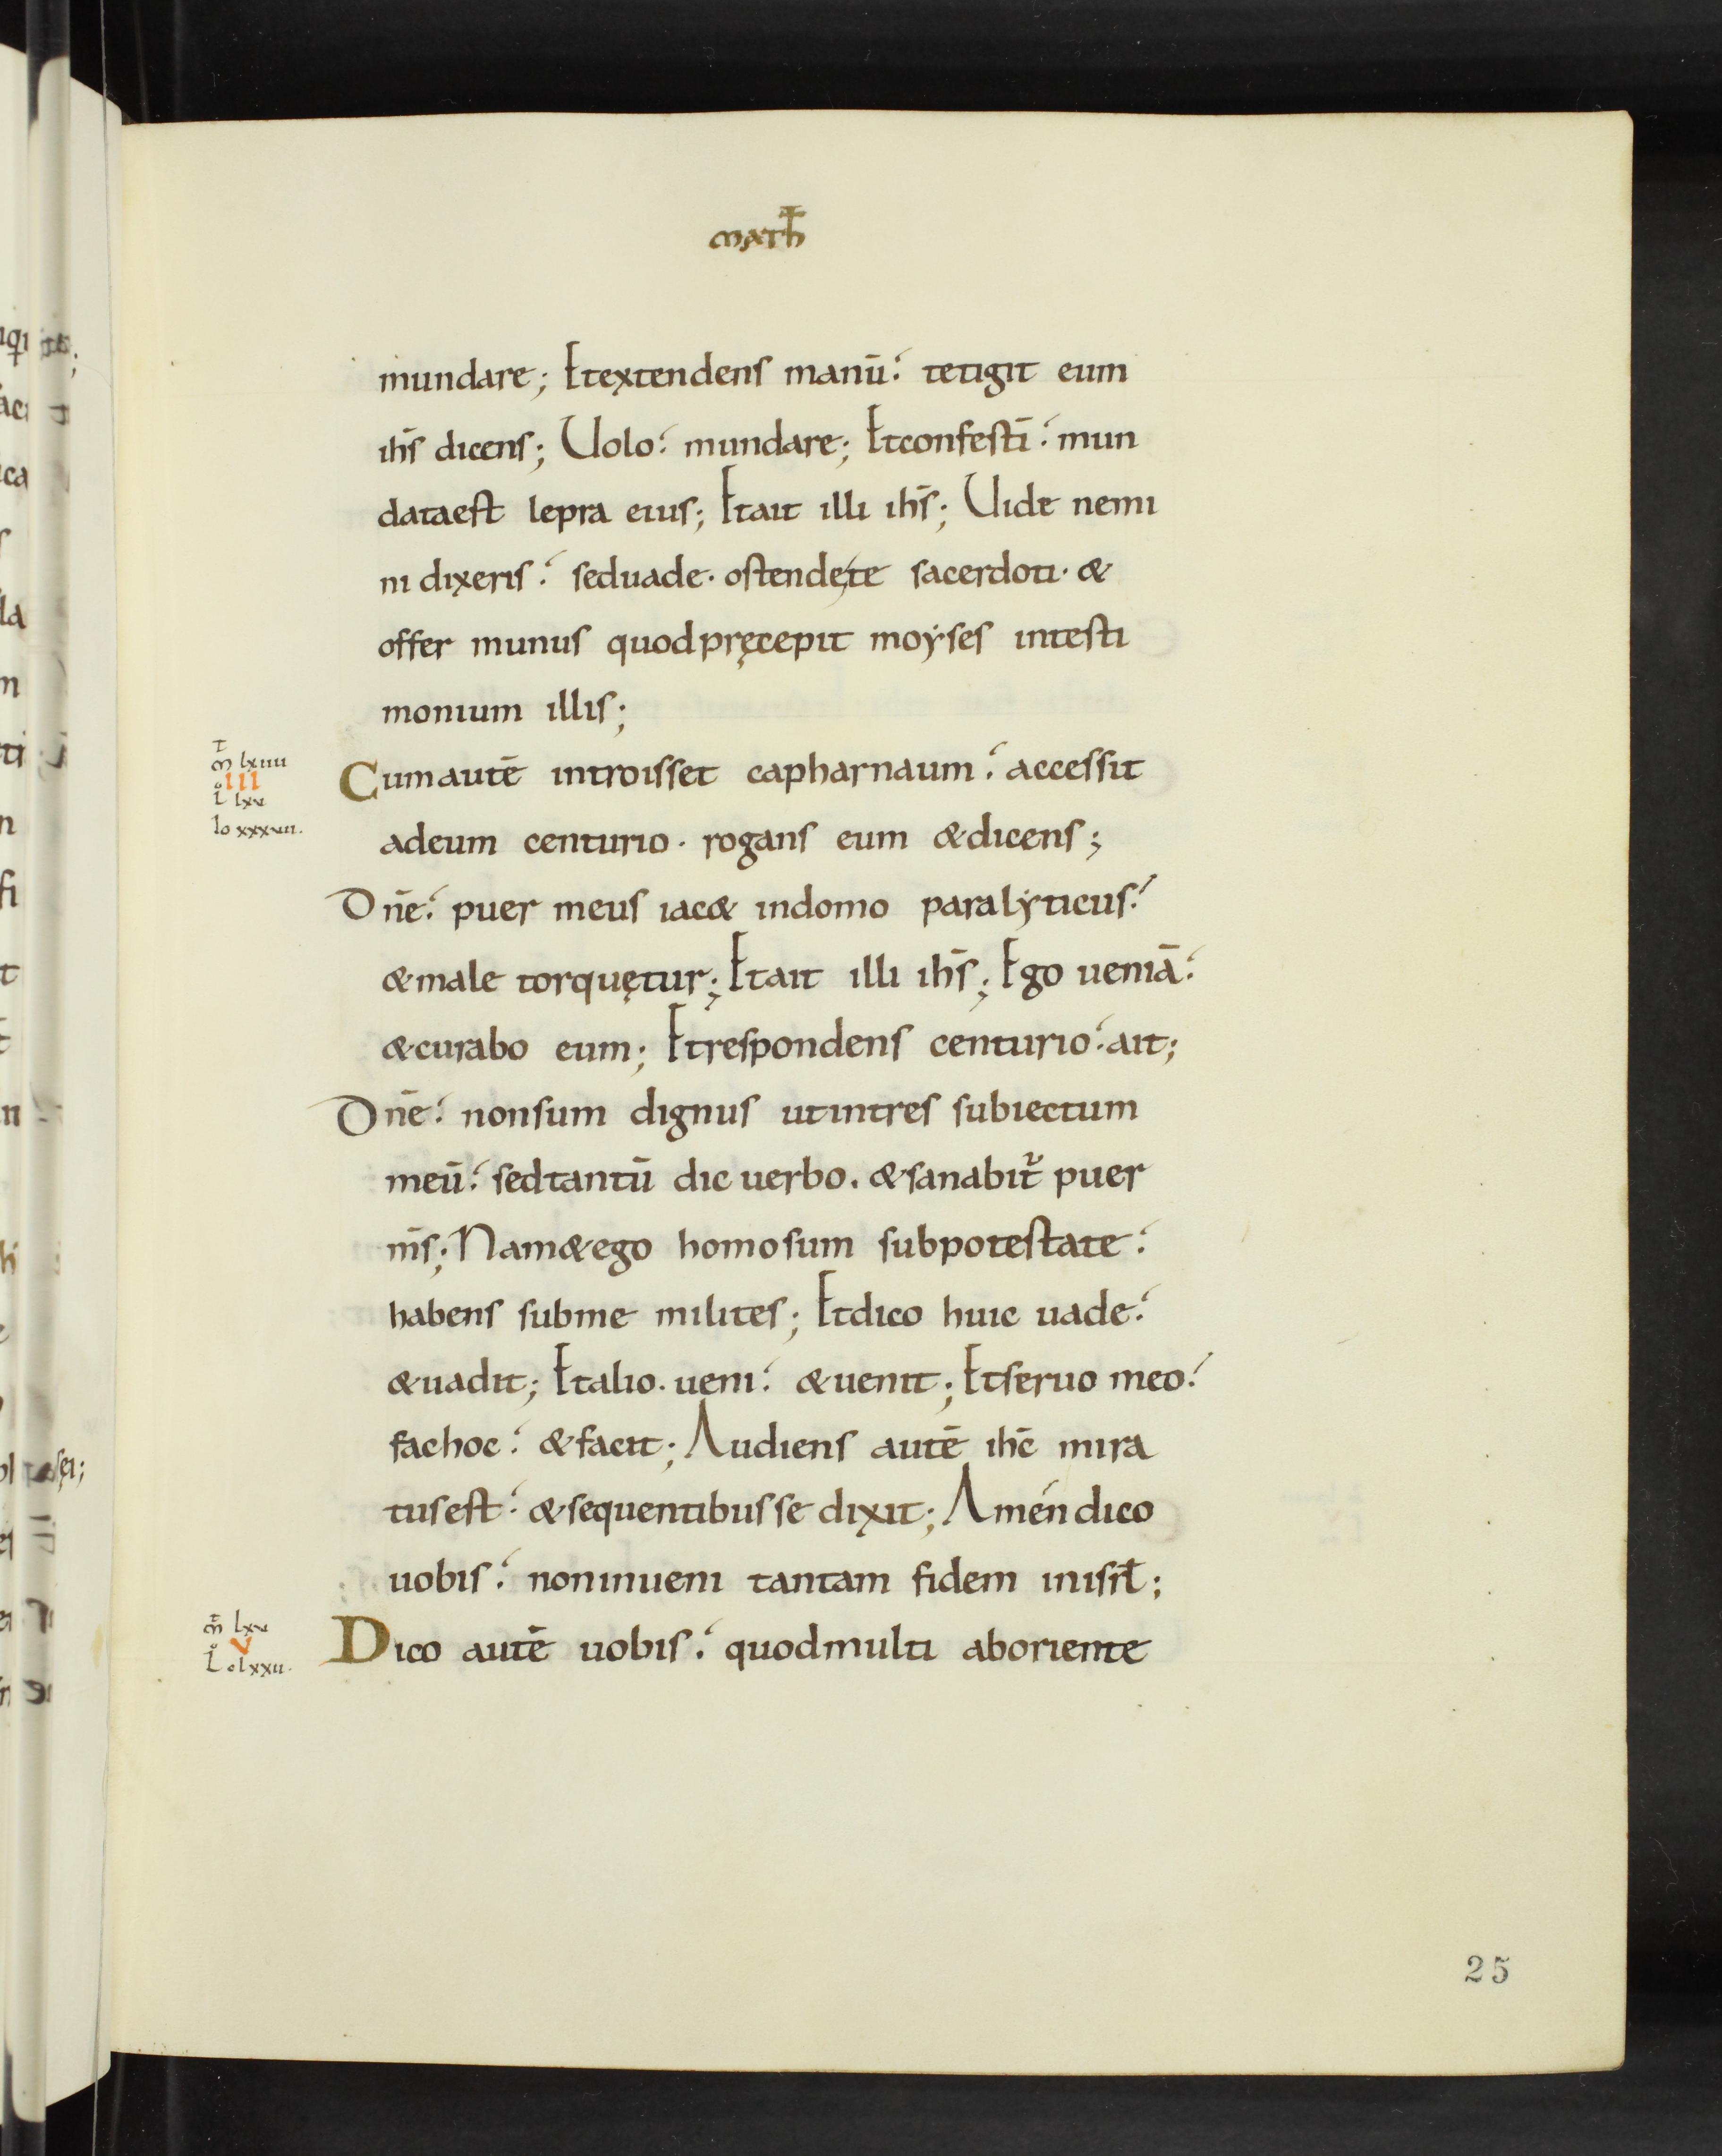 math̄
mundare; Etextendens manū. tetigit eum
ihs̄ dicens; Uolo. mundare; Etconfestī. mun
dataest lepra eius; Etait illi ihs̄; Uide nemi
ni dixeris. seduade. ostendete sacerdoti. &
offer munus quodpręcepit moẏses intesti
monium illis;
m̄ lxiiii
III
L lxv
Io xxxvii.
Cumautē introisset capharnaum. accessit
adeum centurio. rogans eum &dicens;
Dnē. puer meus iac& indomo paralẏticus.
&male torquętur; Etait illi ihs̄; Ego ueniā.
&curabo eum; Etrespondens centurio. ait;
Dnē. nonsum dignus utintres subiectum
meū. sedtantū dic uerbo. &sanabit᷑ puer
ms̄; Nam&ego homosum subpotestate.
habens subme milites; Etdico huic uade.
&uadit; Etalio. ueni. &uenit; Etseruo meo.
fachoc. &facit; Audiens autē ihc̄ mira
tusest. &sequentibusse dixit; Amén dico
uobis. noninueni tantam fidem inisrł;
m̄ lxv
V
L clxxii.
Dico autē uobis. quodmulti aboriente
25